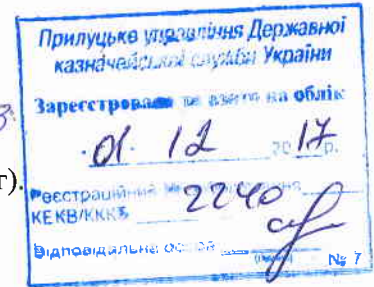 Прилуцьке управління Державної
казначейської служби України
Зареєстровано та взято на облік
01 12 2017р.
г).
Реєстраційний №
КЕКВ/ККК 2240
Відповідальна особа
№ 7